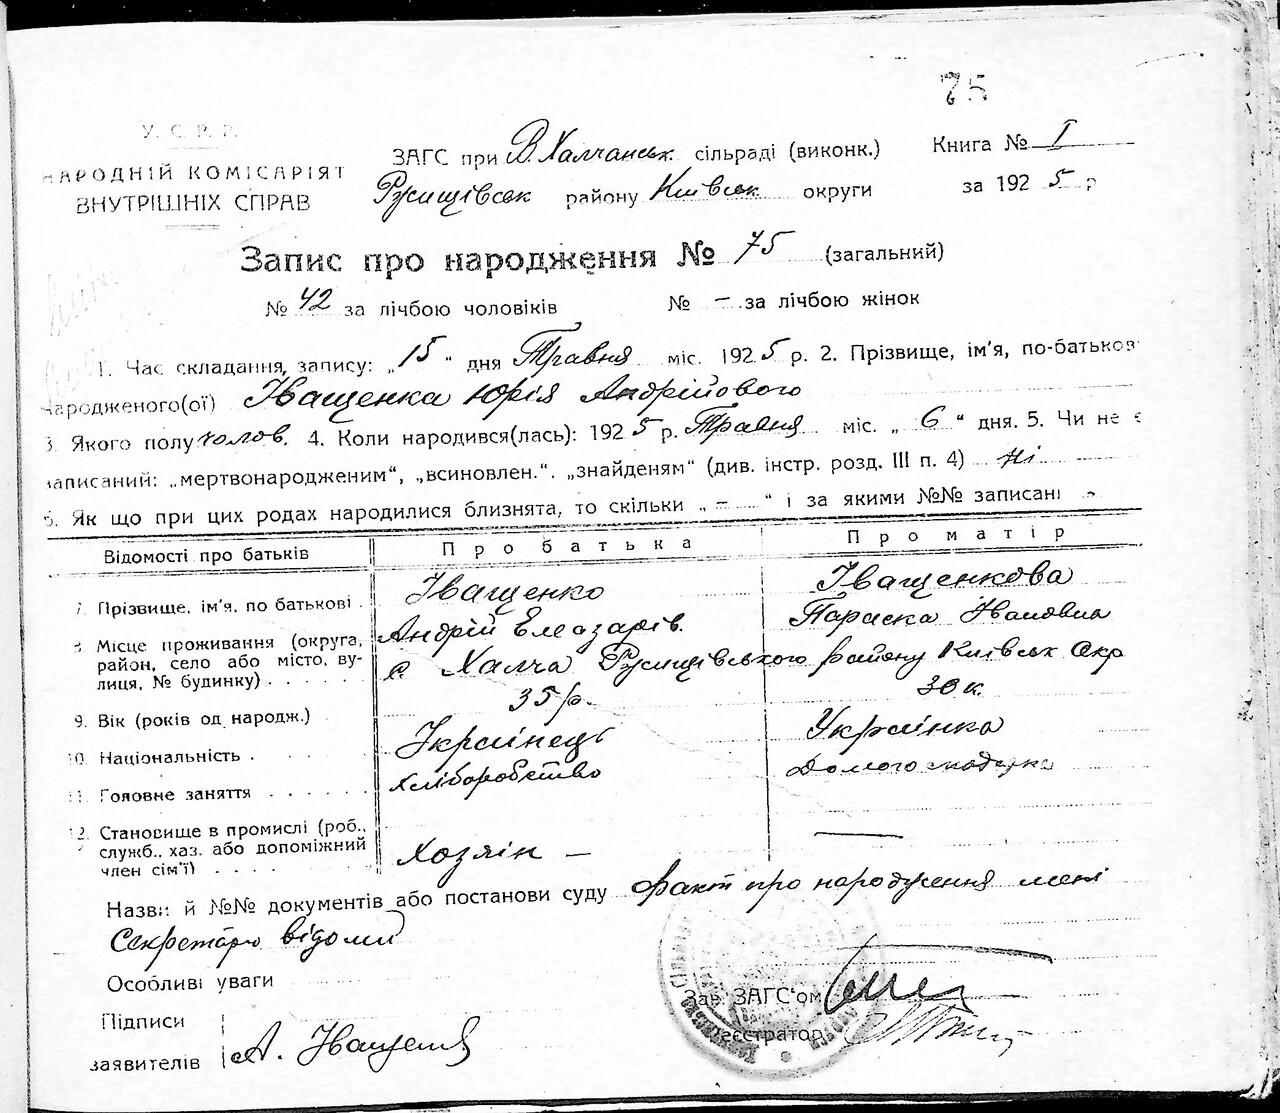 75
У. С. Р. Р.
НАРОДНІЙ КОМІСАРІЯТ
ВНУТРІШНІХ СПРАВ
ЗАГС при В. Халчанськ сільраді (виконк.)
Русищівськ району Київськ округи
Книга № I
за 1925 р
Запис про народження № 75 (загальний)
№ 42 за лічбою чоловіків № – за лічбою жінок
1. Час складання запису: „15“ дня Травня міс. 1925 р. 2. Прізвище, ім'я, по-батькові
народженого(ої) Іващенка Юрія Андрійового
3. Якого полу чолов. 4. Коли народився(лась): 1925 р. Травня міс. „6“ дня. 5. Чи не є
записаний: „мертвонародженим“, „всиновлен.“. „знайденям“ (див. інстр. розд. III п. 4) ні
6. Як що при цих родах народилися близнята, то скільки „–“ і за якими №№ записані -
Відомості про батьків Про батька Про матір
7. Прізвище, ім'я, по батькові . Іващенко Іващенкова
Андрій Елеазарів. Параска Іванівна
8. Місце проживання (округа, район, село або місто, вулиця, № будинку) . . . . . с Халча Русищівського району Київськ Окр
9. Вік (років од народж.) 35 р. 30 к.
10. Національність . . . . Українець Українка
11. Головне заняття . . . . . . Хліборобство
12. Становище в промислі (роб., служб., хаз. або допоміжний член сім'ї) . . . . Хозяін – —
Назви й №№ документів або постанови суду Факт про народження мені
Секретарю відомий
Особливі уваги
Зав. ЗАГС'ом
Реєстратор
Підписи
заявителів А. Іващенко